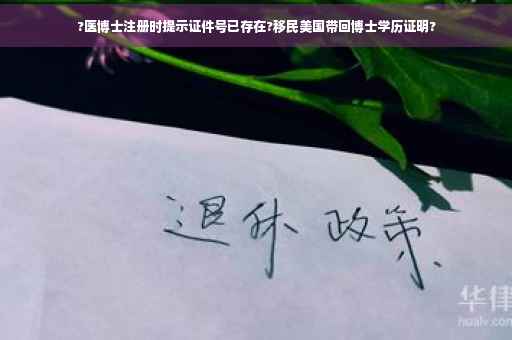 ?医博士注册时提示证件号已存在?移民美国带回博士学历证明?
退休 政策
华律
hualv.com